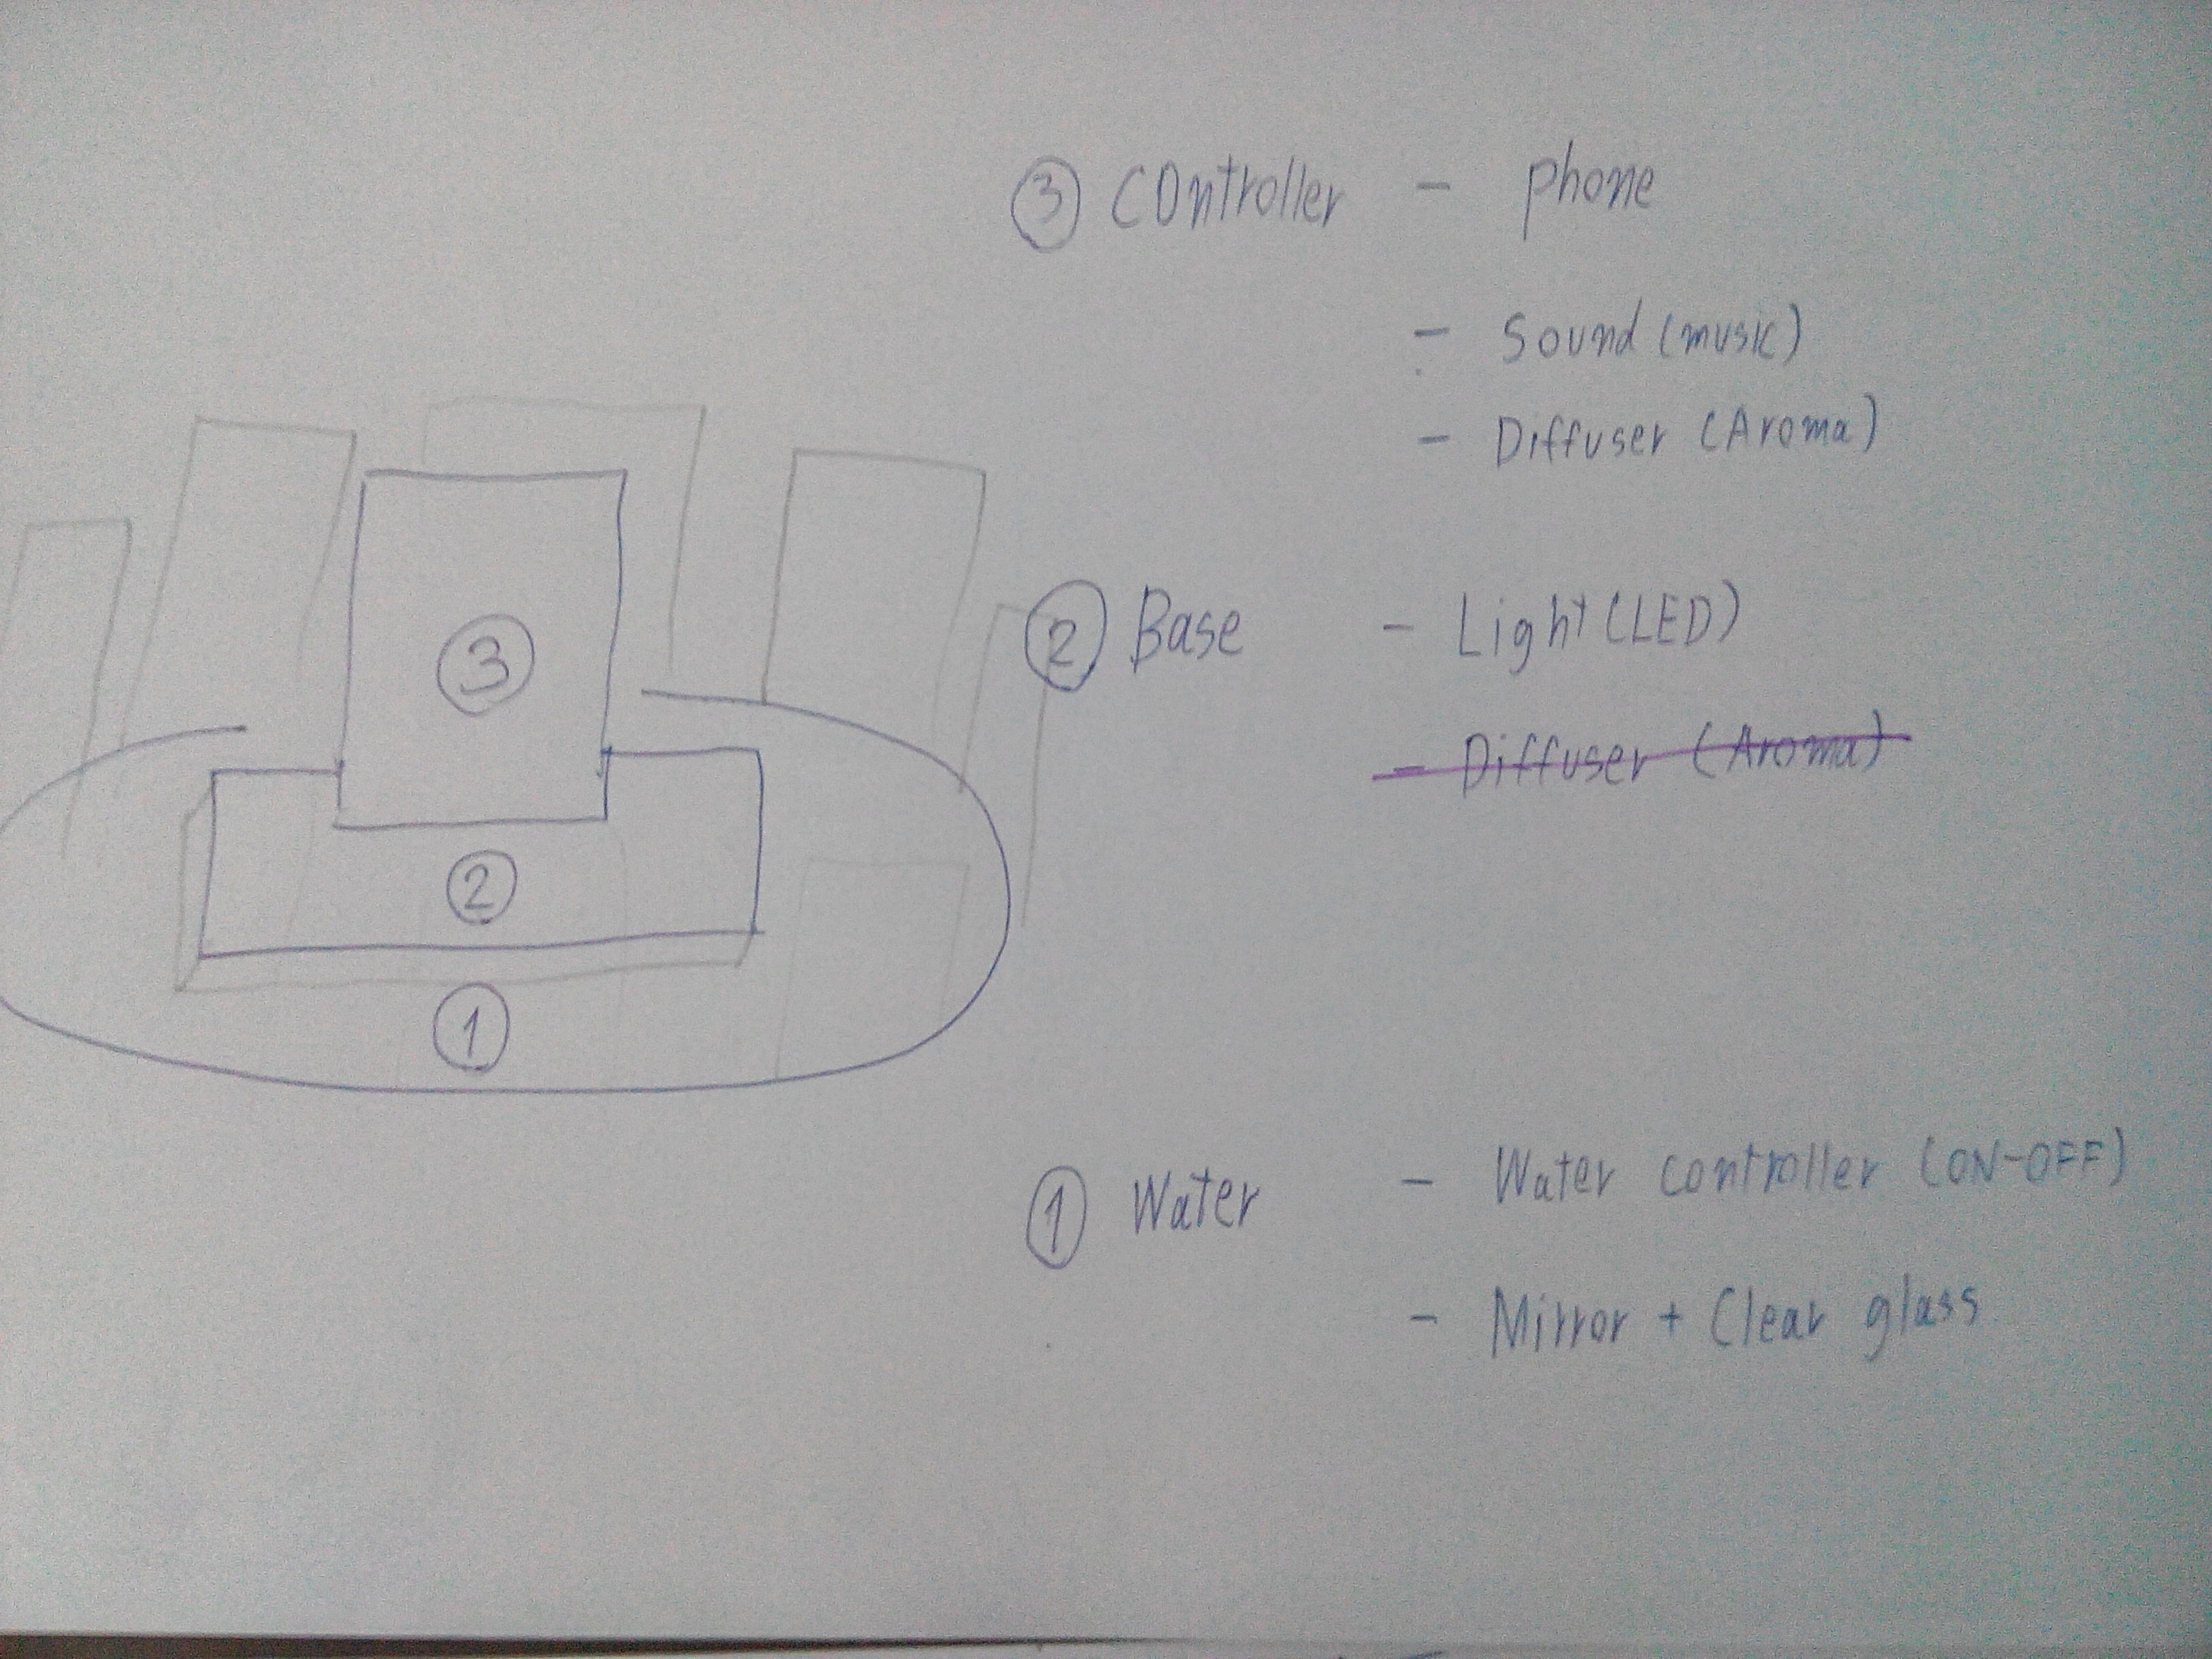 ③ Controller - phone
- Sound (music)
- Diffuser (Aroma)
② Base - Light (LED)
- Diffuser (Aroma)
① Water - Water controller (ON-OFF)
- Mirror + Clear glass
③
②
①